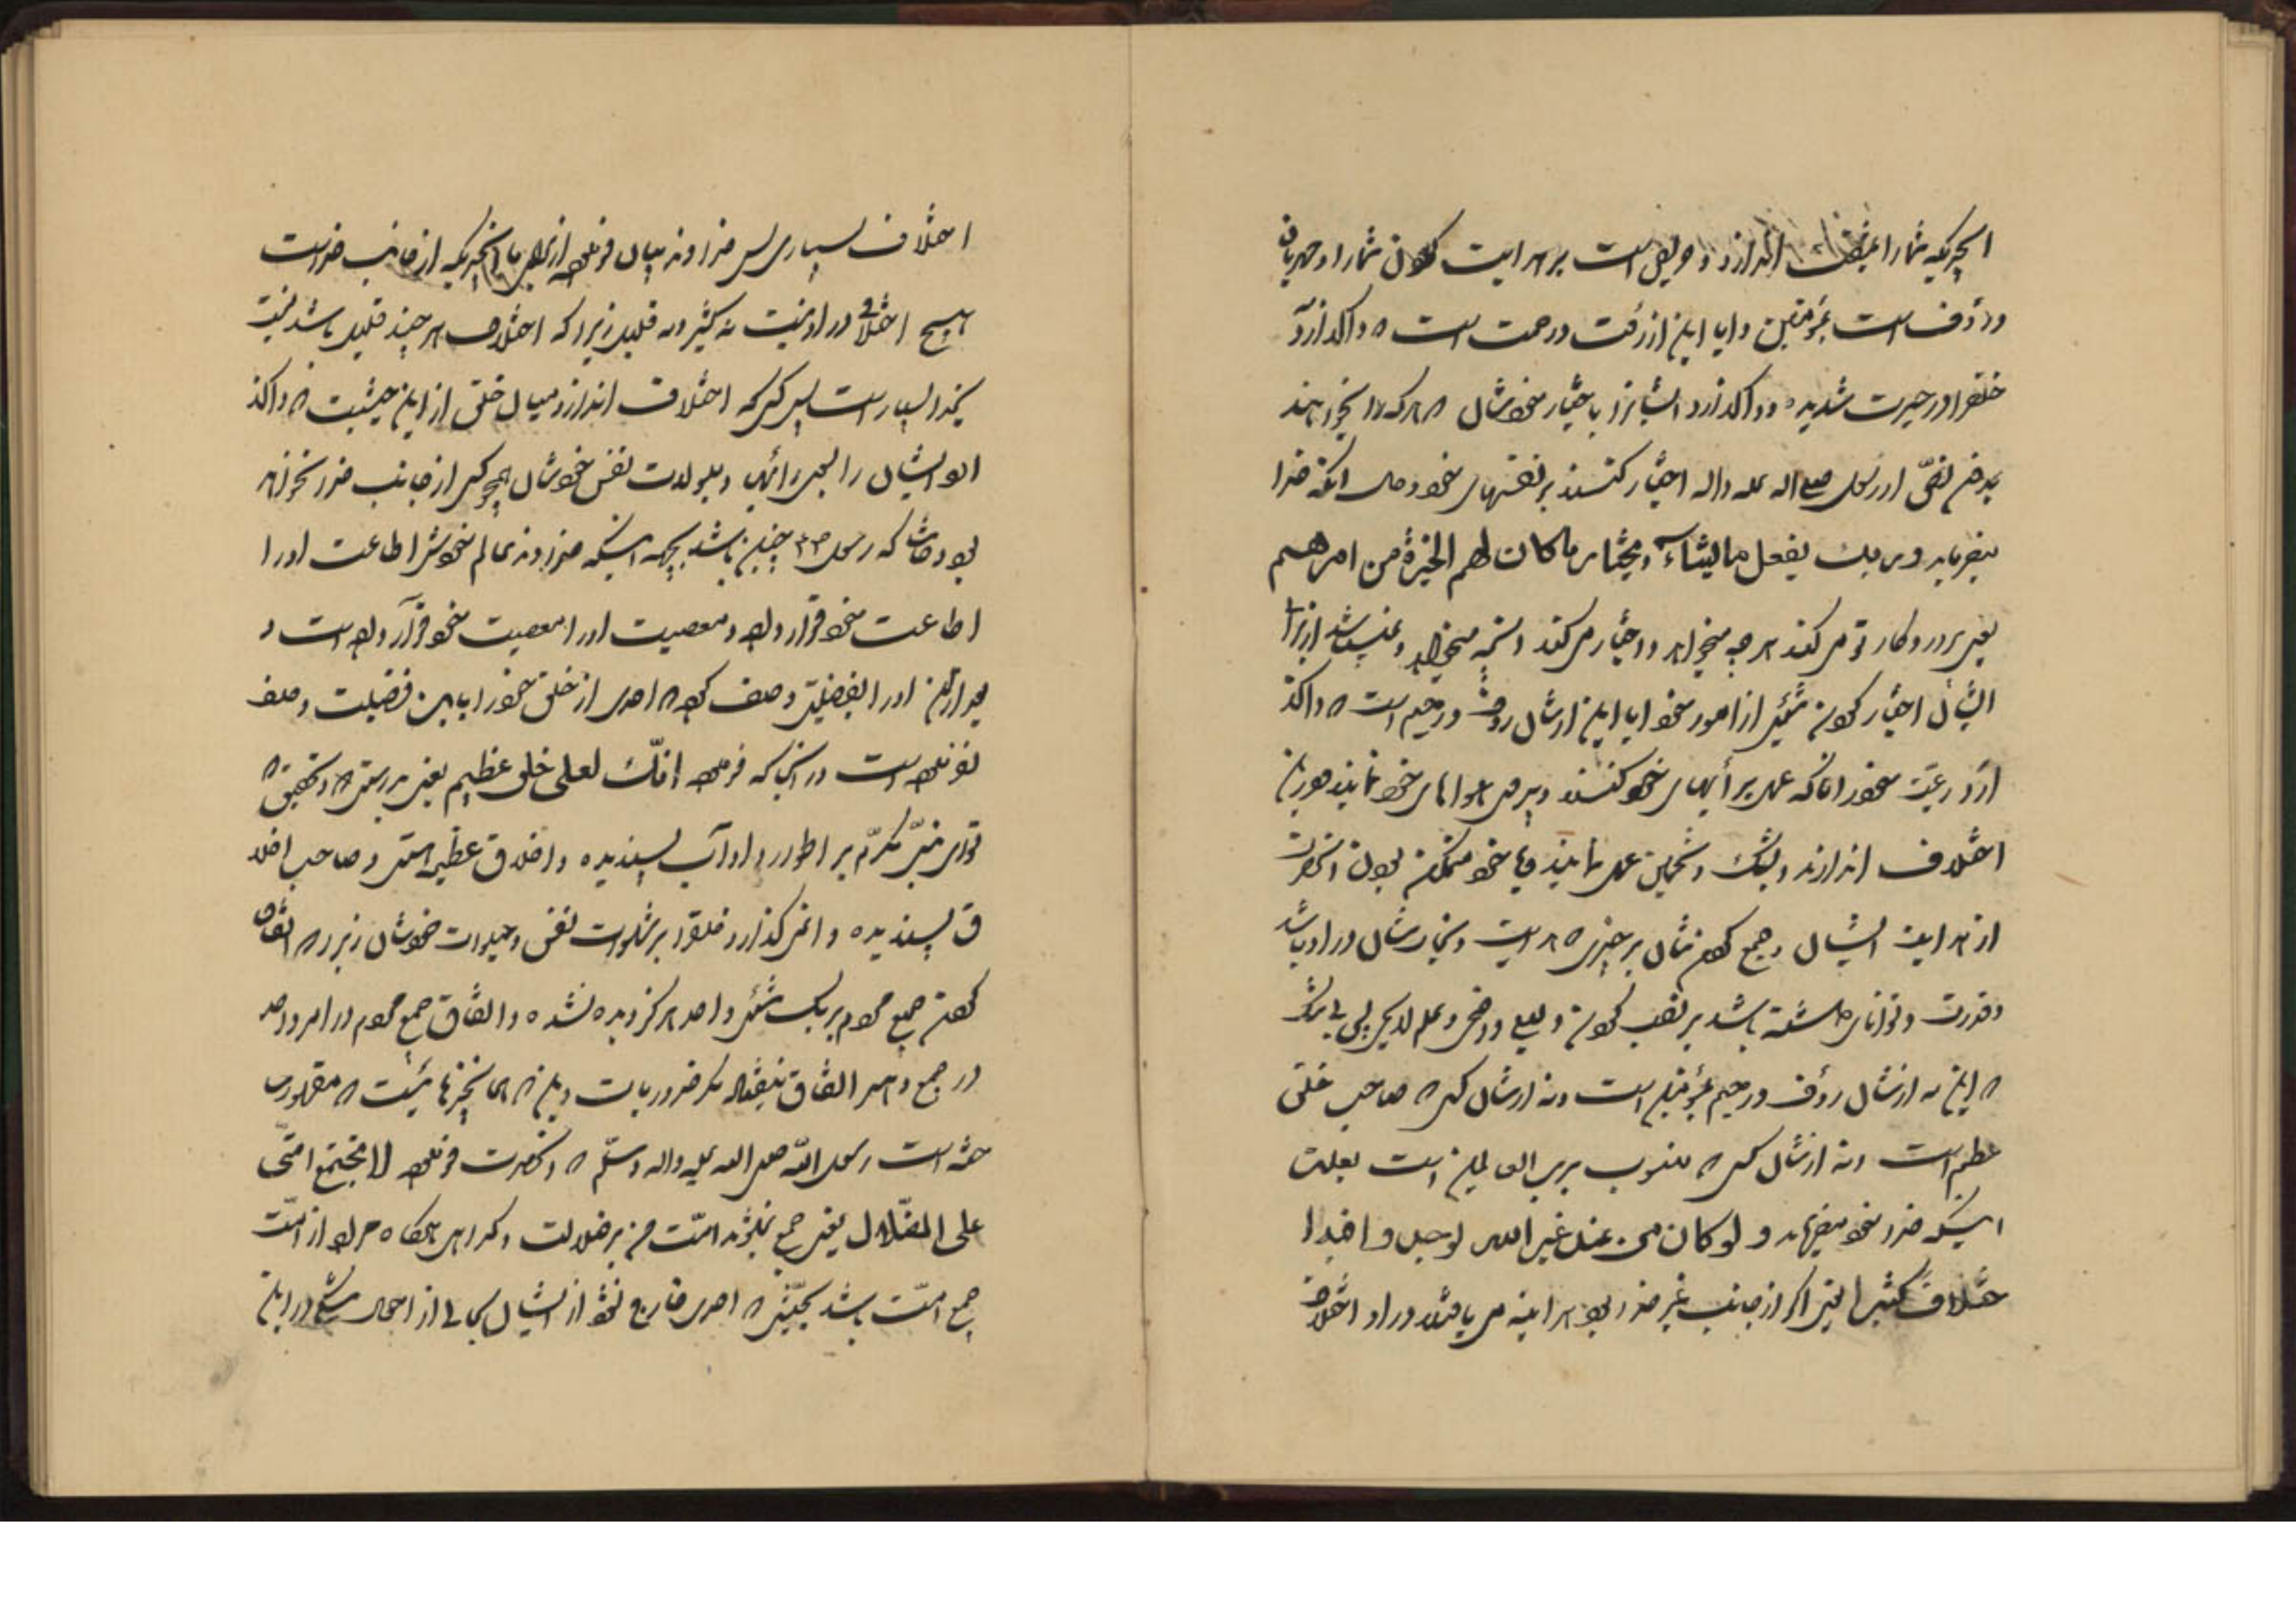 انچیزیکه شما را بمشقت اندازد و حریص است بر هدایت کردن شما را و مهربان
و رؤف است بمؤمنین و ایا این از رئفت و رحمت است که واگذارد
خلقرا در حیرت شدیده و واگذارد ایشانرا باختیار خودشان که هر که را بخواهند
بدون نصّی از رسول صلی اله علیه واله اختیار کنند بر نفسهای خود و حال آنکه خدا
میفرماید وربك یفعل مایشاء ویختار ماکان لهم الخیرة من امرهم
یعنی پروردگار تو میکند هر چه میخواهد و اختیار میکند انچه میخواهد و نمیباشد از برای
ایشان اختیار کردن شیئی از امور خود ایا این از شأن رؤف و رحیم است که واگذ
ارد رعیّت خود را تا آنکه عمل برأیهای خود کنند و پیروی هواهای خود نمایند و در میان
اختلاف اندازند و بشك و تخمین عمل نمایند و با وجود متمکن بودن انحضرت
از هدایت ایشان و جمع کردنشان بر چیزی که هدایت و نجاتشان در او باشد
و قدرت و توانائی داشته باشد بر نصب کردن ولیی و وصی و علم لایحی بی شك
که این نه از شأن رؤف و رحیم بمؤمنین است و نه از شأن کسی که صاحب خلق
عظیم است و نه از شأن کسی که منسوب برب العالمین است بعلت
اینکه خدا خود میفرماید و لوکان من عند غیر الله لوجدوا فیه ا
ختلافاً کثیرا یعنی اگر از جانب غیر خدا بود هر اینه می یافتند در او اختلاف
اختلاف بسیاری پس خداوند بیان فرموده از برای ما انچیزیکه از جانب خداست
هیچ اختلافی در او نیست نه کثیر و نه قلیل زیرا که اختلاف هر چند قلیل باشد نسبت
بخدا بسیار است پس کسی که اختلاف اندازد میان خلق از این حیثیت که واگذ
ارد ایشان را به رأیها و میولات نفس خودشان همچو کسی از جانب خدا نخواهد
بود و حاشا که رسول ص چنین باشد بجهة اینکه خداوند عالم خودش اطاعت او را
اطاعت خود قرار داده و معصیت او را معصیت خود قرار داده است و
بعد از آن او را بفضیلتی وصف کرده که احدی از خلق خود را باین فضیلت وصف
نفرموده است در آنجا که فرموده إنّك لعلی خلق عظیم یعنی بدرستی که و بتحقیق که
توای نبیّ مکرّم بر اطوار و اداب پسندیده و اخلاق عظیم هستی و صاحب اخلا
ق پسندیده و انمیگذارد خلقرا بر شهوات نفس و میولات خودشان زیرا که اتفاق
کردن جمیع مردم بر یك شیئی واحد هرگز دیده نشده و اتفاق جمیع مردم در امر واحد
در جمیع دهر اتفاق نیفتاده مگر ضروریات و این که همه انچیزهائیست که مقدورت
حقه است رسول اللّه صلی الله علیه واله وسلّم که انحضرت فرموده لا تجتمع امّتی
علی الضّلال یعنی جمع نمیشوند امّت من بر ضلالت و گمراهی هرگاه مراد از امّت
جمیع امّت باشد بحیثیتی که احدی خارج نشود از ایشان بجای از احوال شکی در این